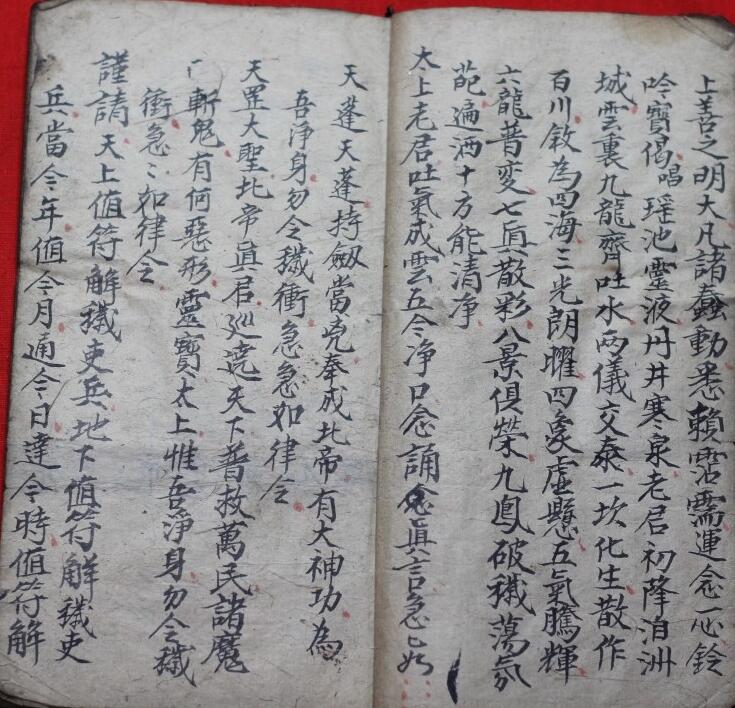 上善之明大凡諸蠢動悉賴霑濡運念一心鈴
吟寶偈唱瑤池靈液丹井寒泉老君初降泊洲
城雲裏九龍齊吐水两儀交泰一坎化生散作
百川敘為四海三光朗曜四象虛懸五氣騰輝
六龍普变七真散彩八景俱榮九鳳破穢蕩氛
葩遍洒十方能清净
太上老君吐氣成雲五今净口念誦真言急〻如
天蓬天蓬持劔當先奉成北帝有大神功為
吾淨身勿令穢衝急急如律令
天罡大聖北帝真君巡遶天下普救萬民諸魔
斬鬼有何惡形靈寶太上惟吾淨身勿令穢
衝急〻如律令
謹請天上值符解穢吏兵地下值符解穢吏
兵當今年值今月通今日達今時值符解